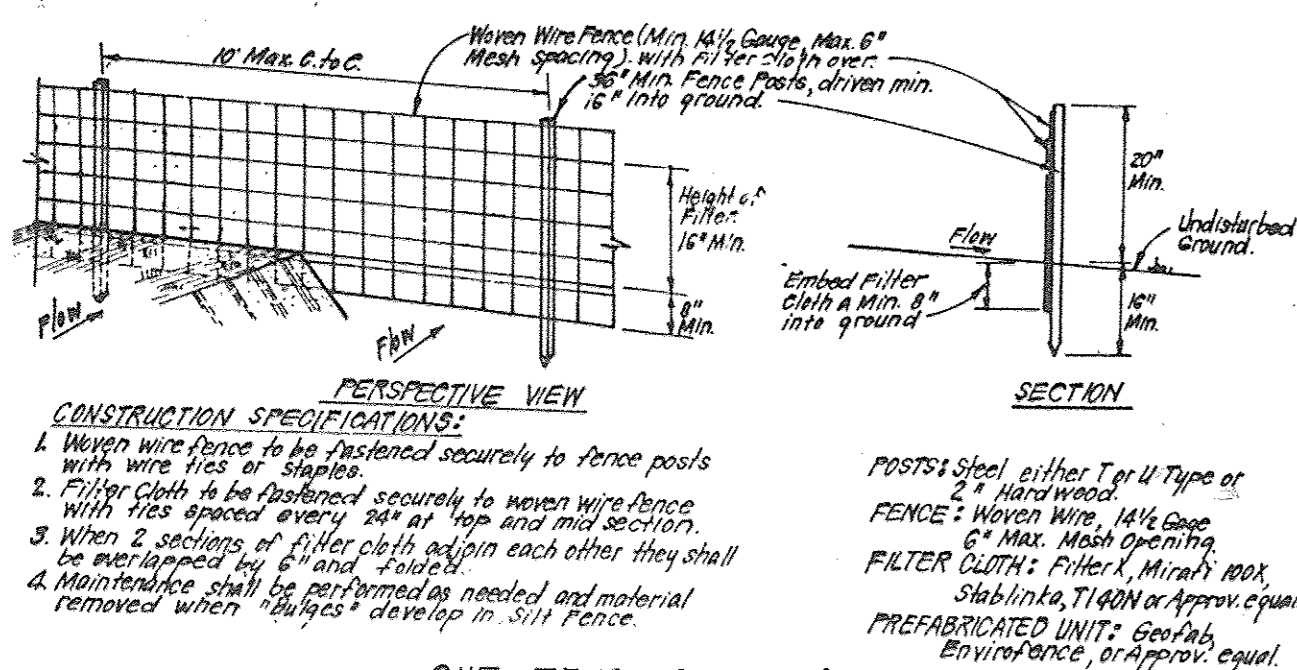 Woven Wire Fence (Min. 14½ Gauge, Max. 6"
Mesh spacing) with Filter Cloth over.
10' Max. C. to C.
36" Min. Fence Posts, driven min.
16" Into ground.
Height of
Filter
16" Min.
8"
Min.
Flow
Flow
PERSPECTIVE VIEW
20"
Min.
Undisturbed
Ground.
Flow
Embed Filter
Cloth a Min. 8"
into ground
16"
Min.
SECTION
CONSTRUCTION SPECIFICATIONS:
1. Woven wire fence to be fastened securely to fence posts
with wire ties or staples.
2. Filter Cloth to be fastened securely to woven wire fence
with ties spaced every 24" at top and mid section.
3. When 2 sections of filter cloth adjoin each other they shall
be overlapped by 6" and folded.
4. Maintenance shall be performed as needed and material
removed when "Bulges" develop in Silt Fence.
POSTS: Steel either T or U Type or
2" Hardwood.
FENCE: Woven Wire, 14½ Gage
6" Max. Mesh Opening
FILTER CLOTH: Filter X, Mirafi 100X,
Stablinka, T140N or Approv. equal
PREFABRICATED UNIT: Geofab,
Envirofence, or Approv. equal.